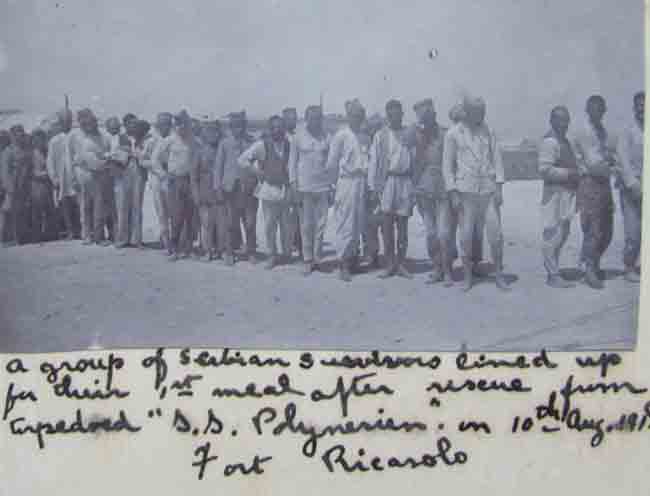 a group of Serbian Survivors lined up
for their 1st meal after rescue from
torpedoed "S.S. Polynerien". on 10th Aug. 191
Fort Ricasolo